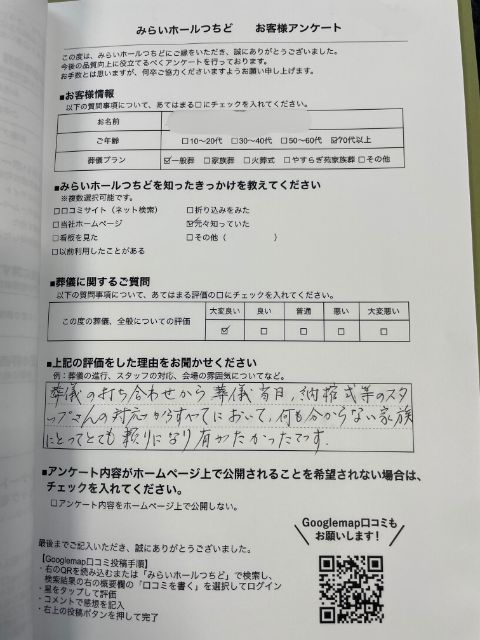 みらいホールつちど　　お客様アンケート
この度は、みらいホールつちどにご縁をいただき、誠にありがとうございました。
今後の品質向上に役立てるべくアンケートを行っております。
お手数とは思いますが、何卒ご協力くださいますようお願い申し上げます。
■お客様情報
以下の質問事項について、あてはまる□にチェックを入れてください。
お名前
ご年齢　□10～20代　□30～40代　□50～60代　☑70代以上
葬儀プラン　☑一般葬　□家族葬　□火葬式　□やすらぎ苑家族葬　□その他
■みらいホールつちどを知ったきっかけを教えてください
※複数選択可能です。
□口コミサイト（ネット検索）　□折り込みをみた
□当社ホームページ　☑元々知っていた
□看板を見た　□その他（　　　　）
□以前利用したことがある
■葬儀に関するご質問
以下の質問事項について、あてはまる評価の□にチェックを入れてください。
大変良い　良い　普通　悪い　大変悪い
この度の葬儀、全般についての評価　☑　□　□　□　□
■上記の評価をした理由をお聞かせください
例：葬儀の進行、スタッフの対応、会場の雰囲気についてなど。
葬儀の打ち合わせから葬儀当日、納棺式等のスタ
ッフさんの対応からすべてにおいて、何も分からない家族
にとってとても頼りになり有がたかったです。
■アンケート内容がホームページ上で公開されることを希望されない場合は、
チェックを入れてください。
□アンケート内容をホームページ上で公開しない。
Googlemap口コミも
お願いします！
最後までご記入いただき、誠にありがとうございました。
【Googlemap口コミ投稿手順】
・右のQRを読み込むまたは「みらいホールつちど」で検索し、
検索結果の右の概要欄の「口コミを書く」を選択してログイン
・星をタップして評価
・コメントで感想を記入
・右上の投稿ボタンを押して完了